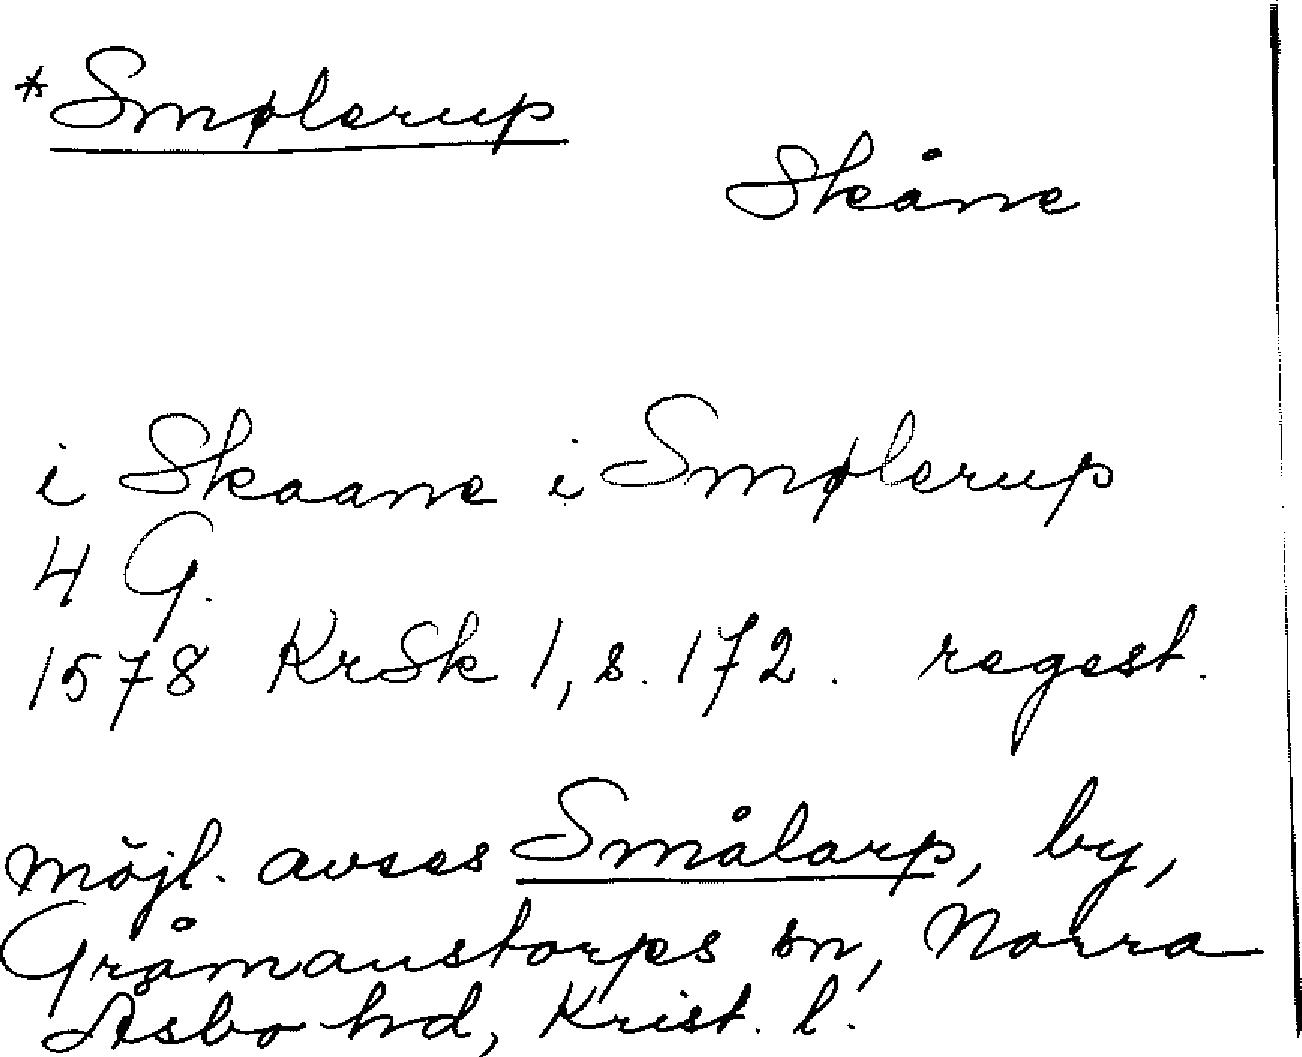 *Smølerup
Skåne
i Skaane i Smølerup
4 G.
1578 KrSk 1, s. 172. regest.
möjl. avses Smålarp, by,
Gråmanstorps sn, Norra
Åsbo hd, Krist. l.